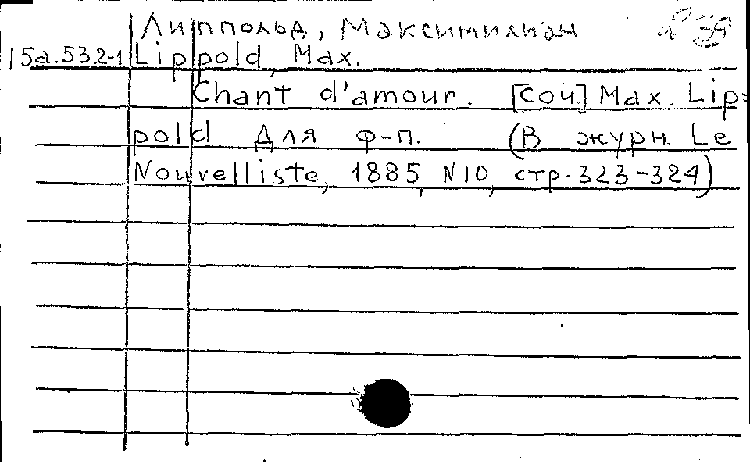 Липпольд, Максимилиан
15а.532-1 Lippold, Max.
Chant d'amour. [соч.] Max. Lip-
pold для ф-п. (В журн. Le
Nouvelliste, 1885, N10, стр. 323-324)